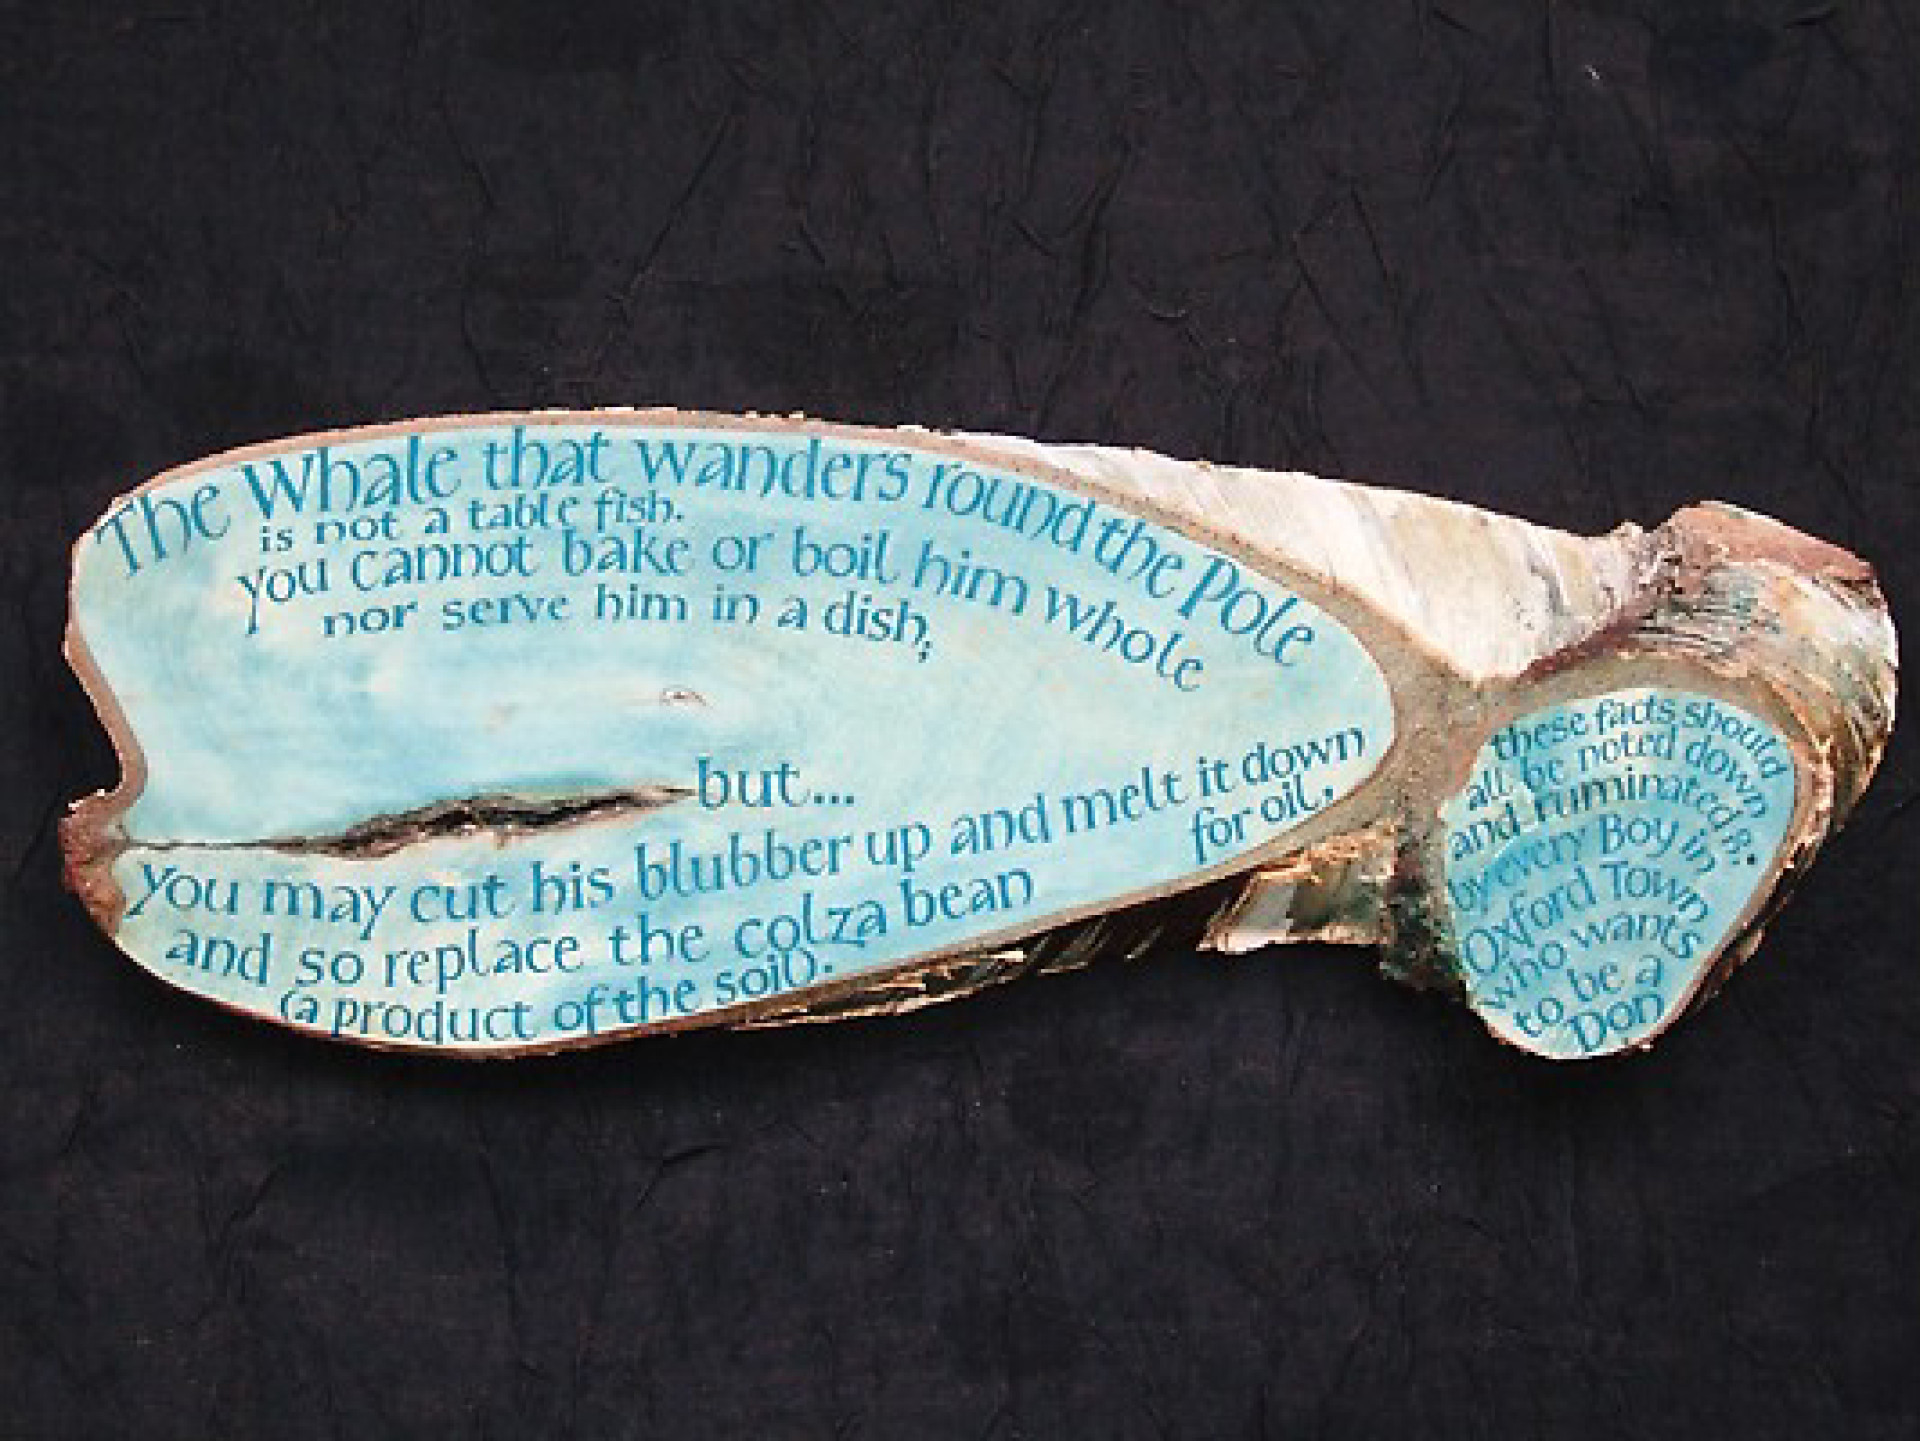 The Whale that wanders round the Pole
is not a table fish.
you cannot bake or boil him whole
nor serve him in a dish;
but...
you may cut his blubber up and melt it down
for oil,
and so replace the colza bean
(a product of the soil).
these facts should
all be noted down
and ruminated
by every Boy in
Oxford Town
who wants
to be a
Don